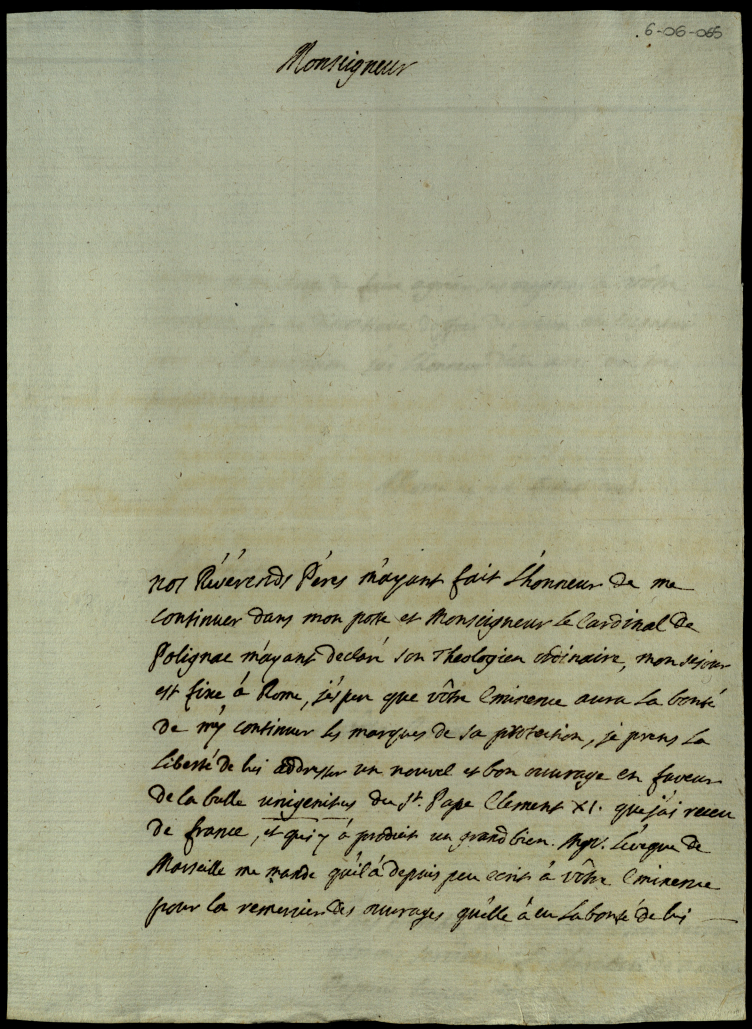 6-06-065
Monseigneur
nos Révérends Péres m'ayant fait l'honneur de me
continuer dans mon poste et Monseigneur le Cardinal de
Polignac m'ayant declaré son Theologien ordinaire, mon sejour
est fixe à Rome, j'espere que vôtre Eminence aura la bonté
de m'y continuer les marques de sa protection, je prens la
liberté de lui addresser un nouvel et bon ouvrage en faveur
de la bulle unigenitus du St. Pape Clement XI. que j'ai receu
de france, et qui y à produit un grand bien. Mgr. L'éveque de
Marseille me mande qu'il à depuis peu ecrit à vôtre Eminence
pour la remercier des ouvrages qu'elle à eu la bonté de lui